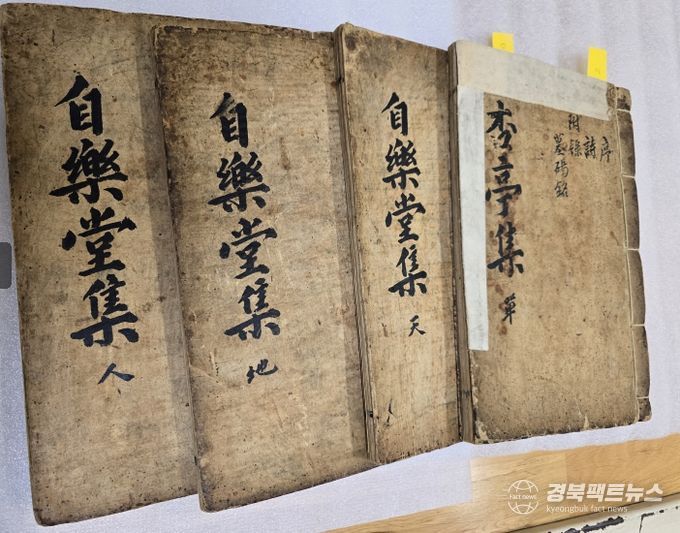 序
詩
附錄
墓碣銘
亭集 單
自樂堂集 天
自樂堂集 地
自樂堂集 人
Fact news
경북팩트뉴스
kyeongbuk fact news